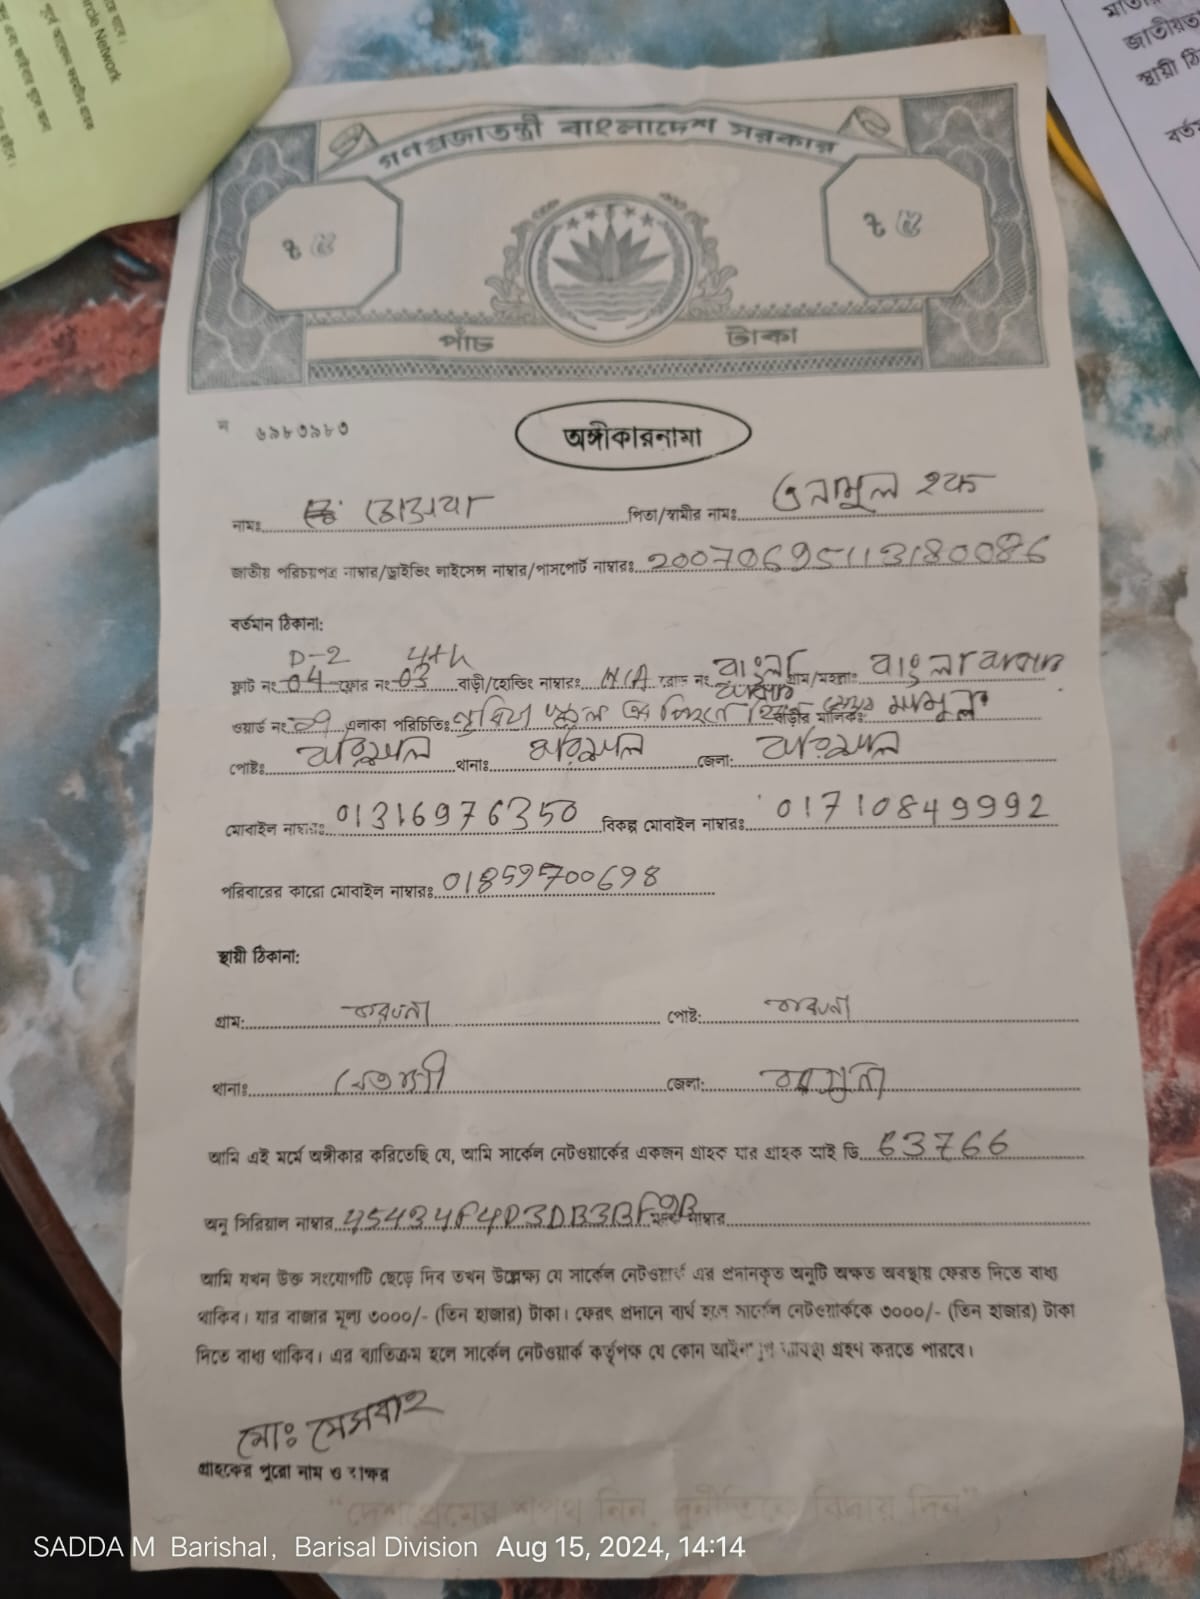 Circle Network
মাতার
জাতীয়ত
স্থায়ী ঠি
বর্ত
গণপ্রজাতন্ত্রী বাংলাদেশ সরকার
৳ ৫
৳ ৫
পাঁচ টাকা
ন ৬৯৮৩৯৮৩
অঙ্গীকারনামা
নামঃ পিতা/স্বামীর নামঃ এনামুল হক
জাতীয় পরিচয়পত্র নাম্বার/ড্রাইভিং লাইসেন্স নাম্বার/পাসপোর্ট নাম্বারঃ 20070695113180086
বর্তমান ঠিকানা:
D-2 4th
ফ্লাট নং 04 ফ্লোর নং 03 বাড়ী/হোল্ডিং নাম্বারঃ N/A রোড নং বাংলা বাজার গ্রাম/মহল্লাঃ বাংলা বাজার
ওয়ার্ড নং এলাকা পরিচিতিঃ বাড়ীর মালিকঃ
পোষ্টঃ বরিশাল থানাঃ বরিশাল জেলা: বরিশাল
মোবাইল নাম্বারঃ 01316976350 বিকল্প মোবাইল নাম্বারঃ 01710849992
পরিবারের কারো মোবাইল নাম্বারঃ 01859700698
স্থায়ী ঠিকানা:
গ্রাম: পোষ্ট:
থানাঃ বেতাগী জেলা: বরগুনা
আমি এই মর্মে অঙ্গীকার করিতেছি যে, আমি সার্কেল নেটওয়ার্কের একজন গ্রাহক যার গ্রাহক আই ডি 63766
অনু সিরিয়াল নাম্বার 45434P4D3DB3BF9B নাম্বার
আমি যখন উক্ত সংযোগটি ছেড়ে দিব তখন উল্লেক্ষ্য যে সার্কেল নেটওয়ার্ক এর প্রদানকৃত অনুটি অক্ষত অবস্থায় ফেরত দিতে বাধ্য
থাকিব। যার বাজার মূল্য ৩০০০/- (তিন হাজার) টাকা। ফেরৎ প্রদানে ব্যর্থ হলে সার্কেল নেটওয়ার্ককে ৩০০০/- (তিন হাজার) টাকা
দিতে বাধ্য থাকিব। এর ব্যতিক্রম হলে সার্কেল নেটওয়ার্ক কর্তৃপক্ষ যে কোন ব্যবস্থা গ্রহণ করতে পারবে।
মোঃ মেসবাহ
গ্রাহকের পুরো নাম ও স্বাক্ষর
“দেশপ্রেমের শপথ নিন, দুর্নীতিকে বিদায় দিন”
SADDA M Barishal, Barisal Division Aug 15, 2024, 14:14